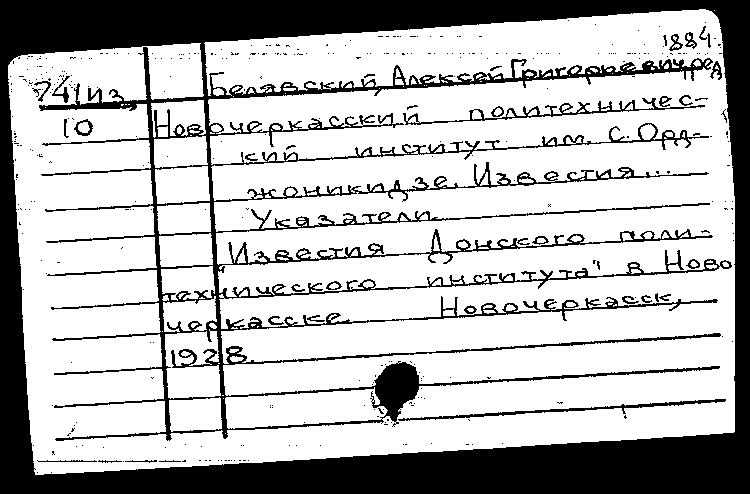 1884
74/из, Белявский, Алексей Григорьевич, ред
10 Новочеркасский политехничес-
кий институт им. С. Орд-
жоникидзе. Известия...
Указатели.
"Известия Донского поли-
технического института" в Ново
черкасске. Новочеркасск,
1928.